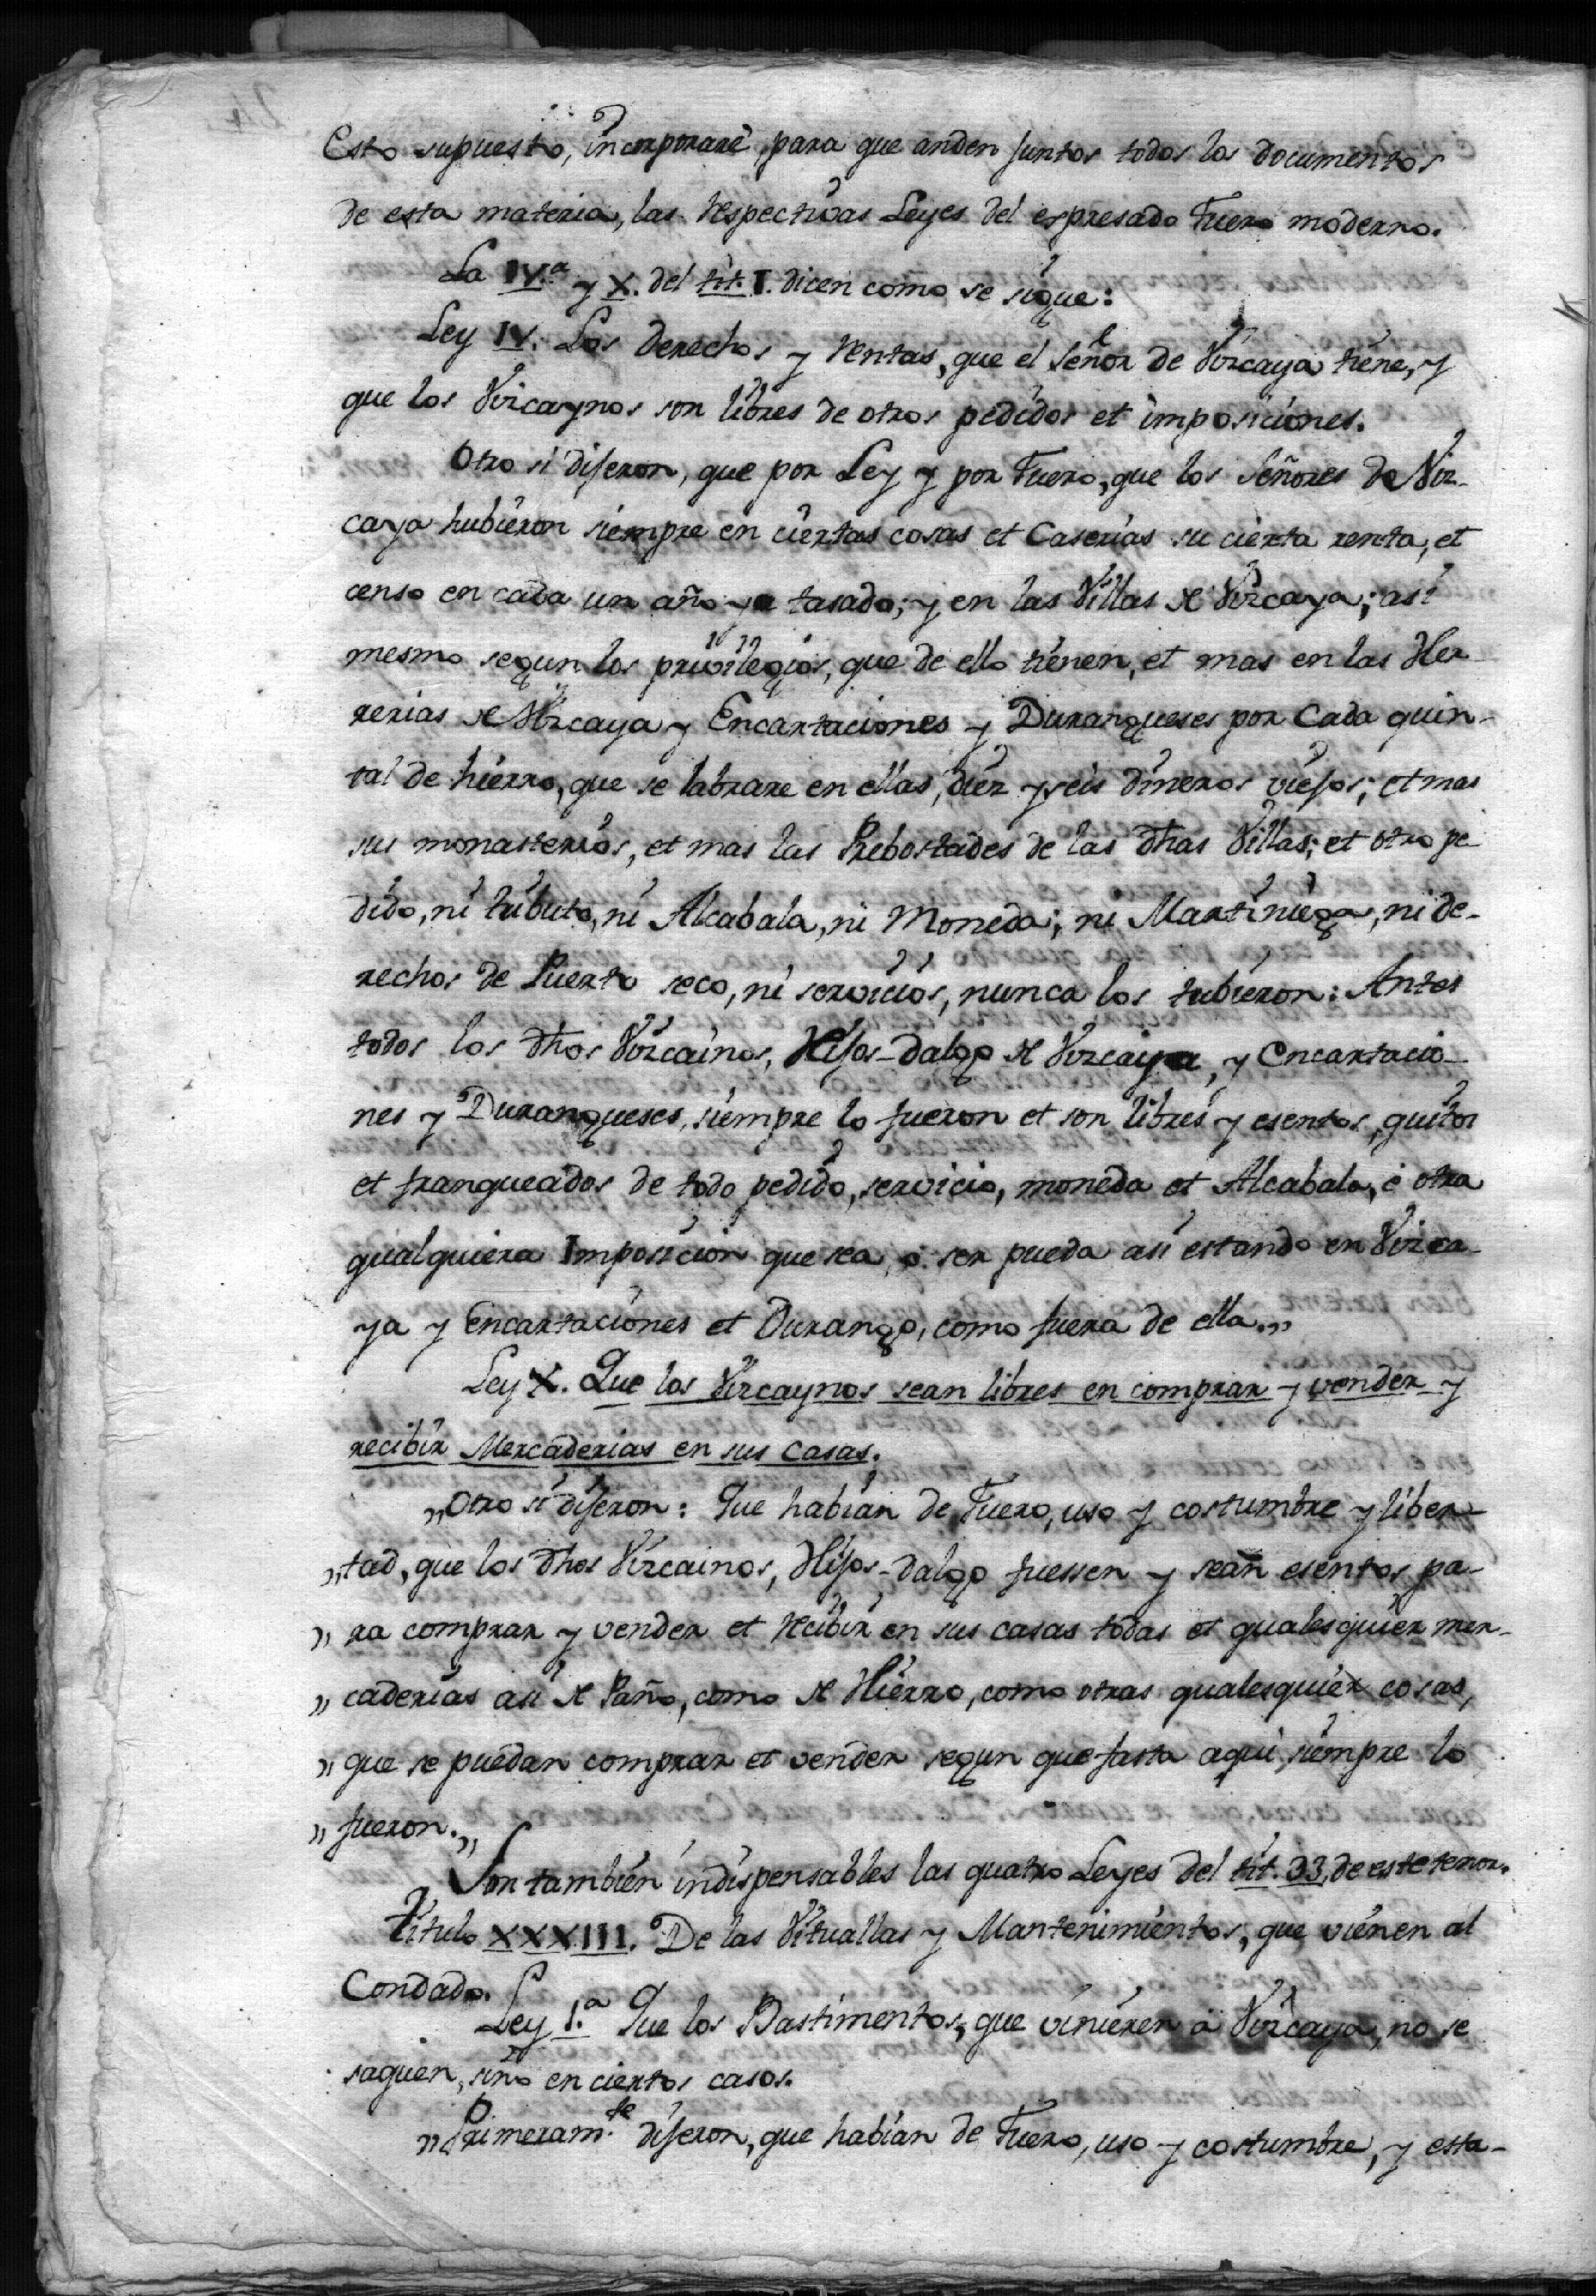 Esto supuesto, incorporaré, para que anden juntos todos los documentos
de esta materia, las respectivas Leyes del expresado Fuero moderno.
La IV.ª y X. del tit. I. dicen como se sigue:
Ley IV. Los derechos y rentas, que el Señor de Vizcaya tiene, y
que los Vizcaynos son libres de otros pedidos et imposiciones.
Otro si dijeron, que por Ley y por Fuero, que los Señores de Viz-
caya hubieron siempre en ciertas casas et Caserías su cierta renta, et
censo en cada un año ya tasado; y en las Villas de Vizcaya; asi
mesmo segun los privilegios, que de ello tienen, et mas en las Her
rerias de Vizcaya y Encartaciones y Durangueses por Cada quin-
tal de hierro, que se labrare en ellas, diez y seis dineros viejos; et mas
sus monasterios, et mas las Prebostades de las dhas Villas; et otro pe
dido, ni tributo, ni Alcabala, ni Moneda; ni Martiniega, ni de-
rechos de Puerto seco, ni servicios, nunca los tubieron: Antes
todos los dhos Vizcainos, Hijos-dalgo de Vizcaya, y Encartacio-
nes y Durangueses, siempre lo fueron et son libres y esentos, quitos
et franqueados de todo pedido, servicio, moneda et Alcabala, é otra
qualquiera Imposicion que sea, ó ser pueda asi estando en Vizca-
ya y Encartaciones et Durango, como fuera de ella.„
Ley X. Que los Vizcaynos sean libres en comprar y vender y
recibir Mercaderias en sus casas.
„Otro si dijeron: Que habian de Fuero, uso y costumbre y liber-
„tad, que los dhos Vizcainos, Hijos-dalgo fuessen y sean esentos pa-
„ra comprar y vender et recibir en sus casas todas et qualesquier mer-
„caderias asi de Paño, como de Hierro, como otras qualesquier cosas,
„que se puedan comprar et vender segun que fasta aqui siempre lo
„fueron.„
Son tambien indispensables las quatro Leyes del tit. 33, de este tenor.
Titulo XXXIII. De las Vituallas y Mantenimientos, que vienen al
Condado.
Ley 1.ª Que los Bastimentos, que vinieren a Vizcaya, no se
saquen, sino en ciertos casos.
„Primeram.te dijeron, que habian de Fuero, uso y costumbre, y esta-